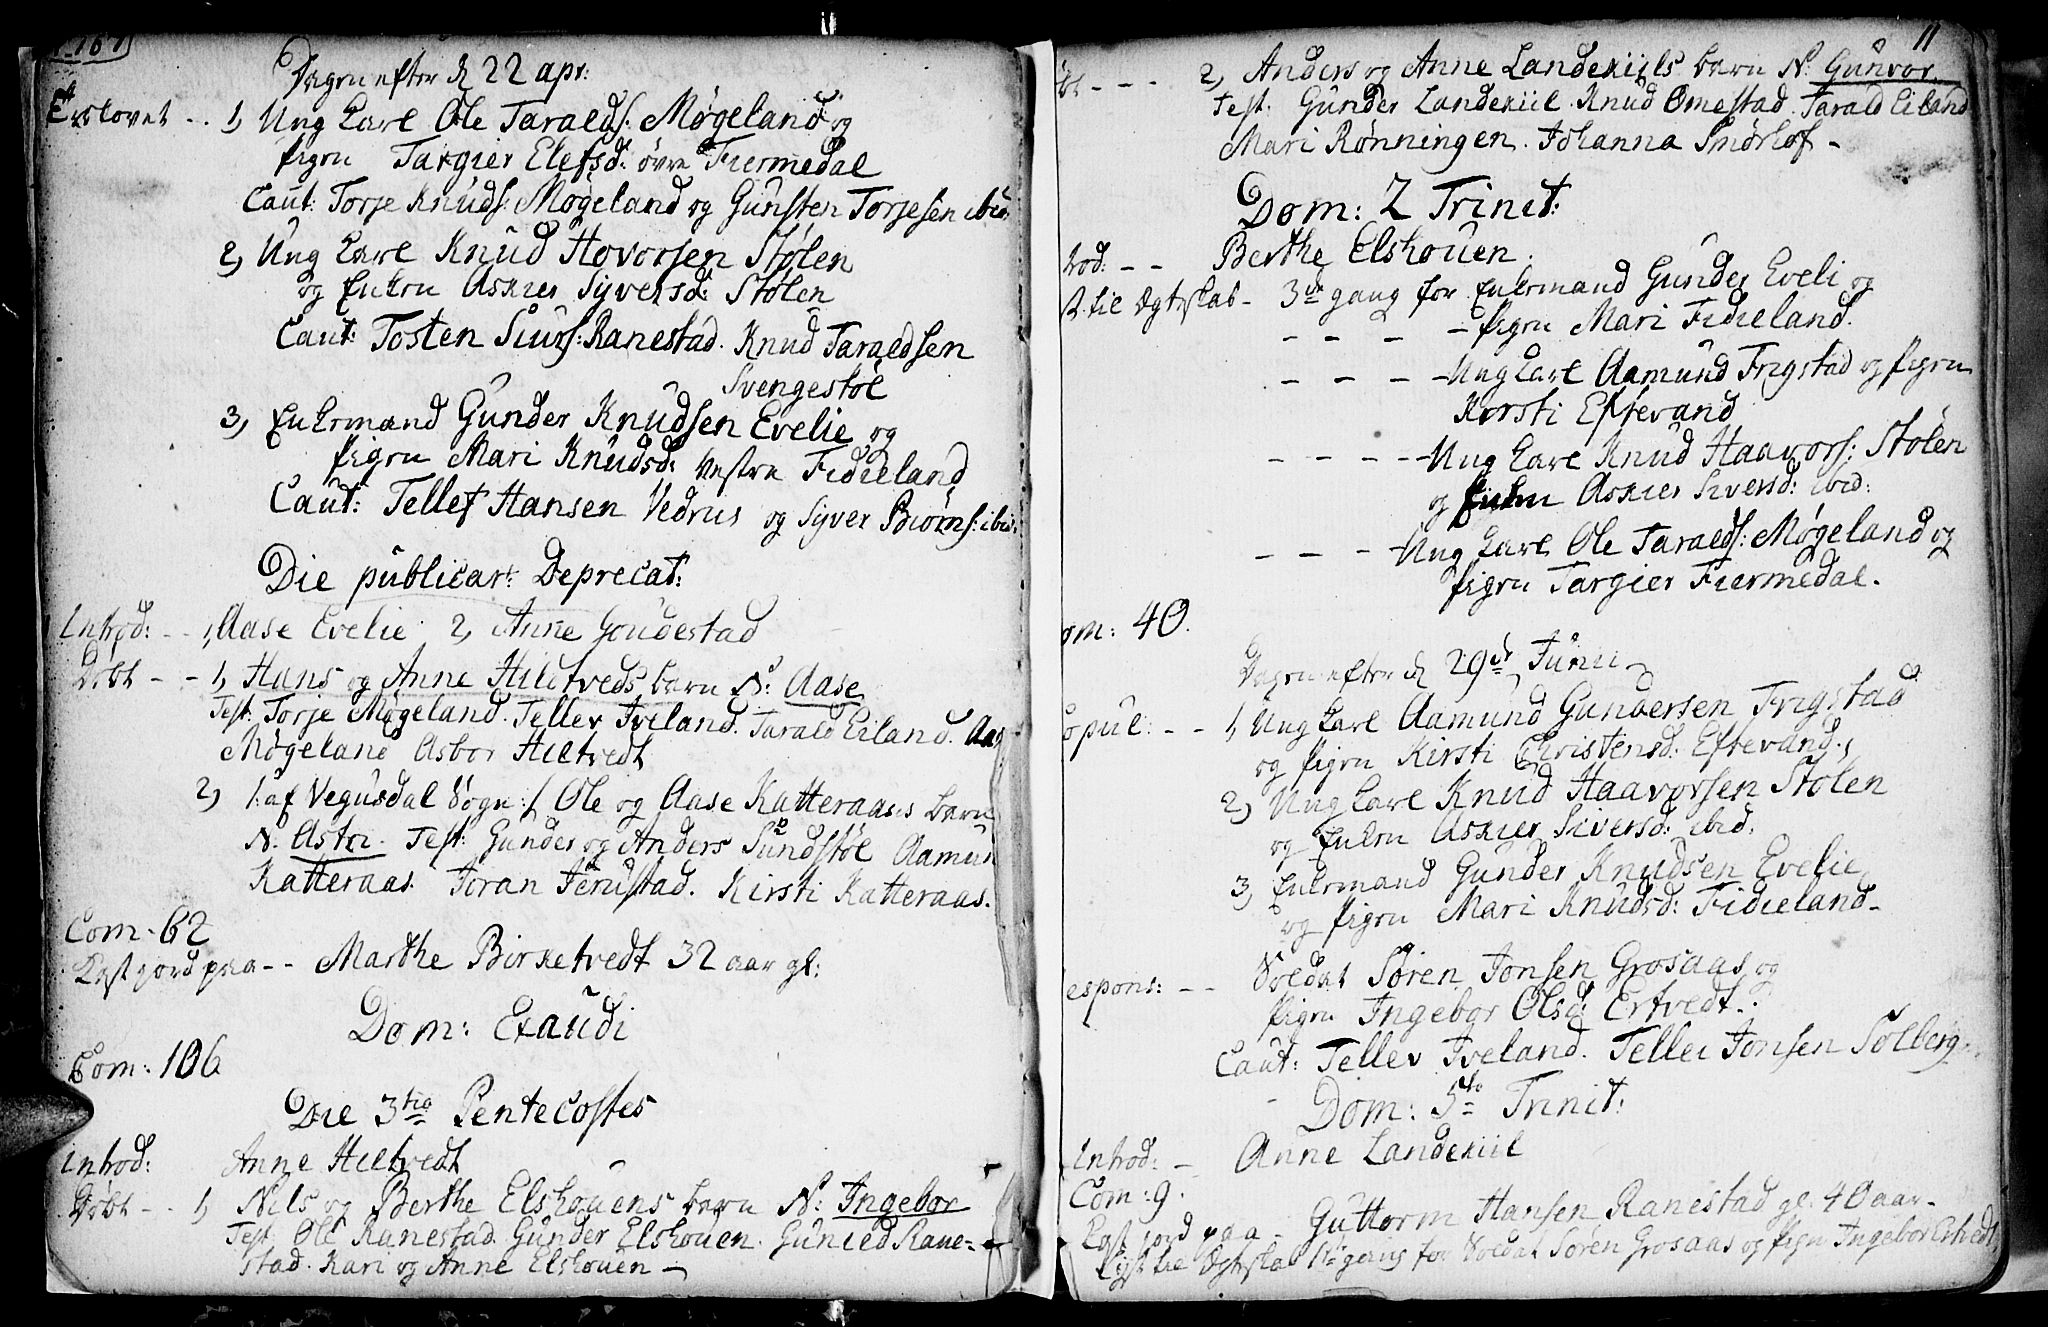 Dagen efter d 22 apr:
Trolovet - . 1, Ung Karl Ole Taralds: Møgeland og
pigen Targier Elefsd: övre Fiermedal
Caut: Torje Knuds: Møgeland og Gunsten Torjesen ibid:
2, Ung Karl Knud Hovorsen Stølen
og Enken Askier Syversd: Stølen
Caut: Tosten Siurs: Ranestad. Knud Taraldsen
Svengestøl
3, Enkemand Gunder Knudsen Evelie og
pigen Mari Knudsd: Vestre Fidieland
Caut: Tellef Hansen Vedrus og Syver Biørns: ibid:
Die publicar: Deprecat:
Introd: - - 1, Aase Evelie 2, Anne Goudestad
Døbt - - 1, Hans og Anne Hiltveds barn N: Aase
Test: Torje Møgeland. Tellev Iveland. Tarald Eiland. Aas
Møgeland Asbor Hiltvedt
2, /: af Vegusdal Sogn :/ Ole og Aase Katteraases barn
N: Astri. Test: Gunder og Anders Sundstøl Aamun
Katteraas. Joran Jerustad. Kirsti Katteraas.
Com. 62
Kast jord paa - - Marthe Birketvedt 32 aar gl:
Dom: Exaudi
Com: 106
Die 3tia Pentecostes
Introd: Anne Hiltvedt
Døbt - . 1, Nils og Berthe Elshouens barn N: Ingebor
Test. Ole Ranestad. Gunder Elshouen. Gunild Rane-
stad. Kari og Anne Elshouen
11
bt - - - 2, Anders og Anne Landekiils barn N: Gunvor.
Test: Gunder Landekiil. Knud Omestad. Tarald Eiland
Mari Rønningen. Johanna Snørhøf -
Dom: 2 Trinit:
trod: - - Berthe Elshouen.
st til Ægteskab - 3de gang for Enkemand Gunder Eveli og
- - - - pigen Mari Fidieland.
- - - - Ung Karl Aamund Frigstad og pigen
Kirsti Eftevand
- - - - Ung Karl Knud Haavors: Stølen
og Enken Askier Siversd: ibid:
- - - - Ung Karl Ole Taralds: Møgeland og
pigen Targier Fiermedal.
om: 40.
Dagen efter d 29de Junii
opul: - - 1, Ung Karl Aamund Gundersen Frigstad
og pigen Kirsti Christensd: Eftevand.
2, Ung Karl Knud Haavorsen Stølen
og Enken Askier Siversd: ibid.
3, Enkemand Gunder Knudsen Evelie
og pigen Mari Knudsd: Fidieland -
espons: - - Soldat Søren Jonsen Grosaas og
pigen Ingebor Olsd: Ertvedt.
Caut: Tellev Iveland. Tellef Jonsen Solberg.
Dom: 5te Trinit:
Introd: - Anne Landekiil
Com: 9.
Kast jord paa - Guttorm Hansen Ranestad gl. 40 aar -
Lyst til Ægteskab 1te gang for Soldat Søren Grosaas og pigen Ingebor Ertvedt